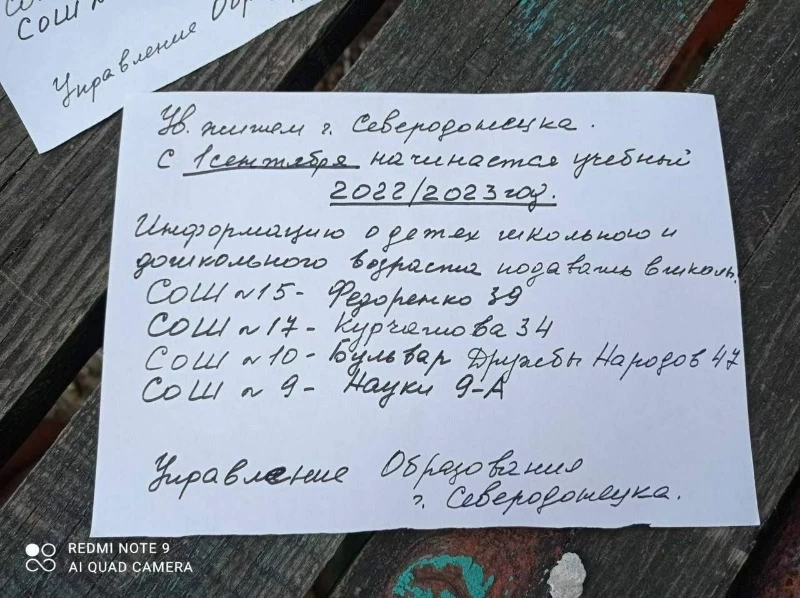 СОШ
Управление
Ув. жителям г. Северодонецка.
С 1 сентября начинается учебный
2022/2023 год.
Информацию о детях школьного и
дошкольного возраста подавать в школы.
СОШ №15 - Федоренко 39
СОШ №17 - Курчатова 34
СОШ №10 - Бульвар Дружбы Народов 47
СОШ № 9 - Науки 9-А
Управление Образования
г. Северодонецка.
REDMI NOTE 9
AI QUAD CAMERA